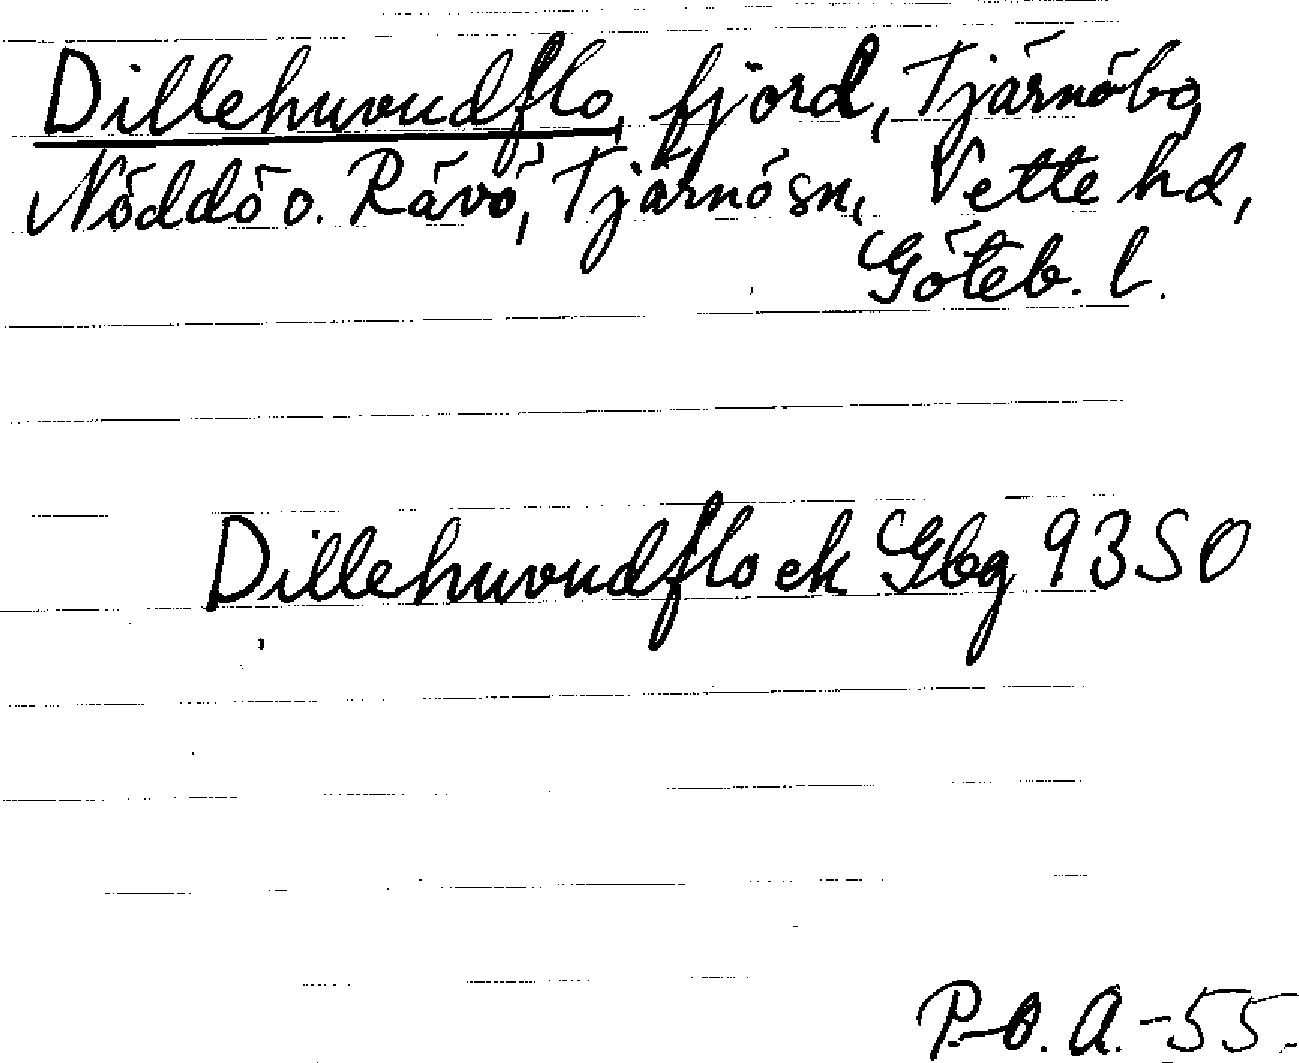 Dillehuvudflo, fjord, Tjärnöbo,
Nöddö o. Rävö, Tjärnö sn, Vette hd,
Göteb. l.
Dillehuvudflo ek Gbg 9350
P-O. A.-55.